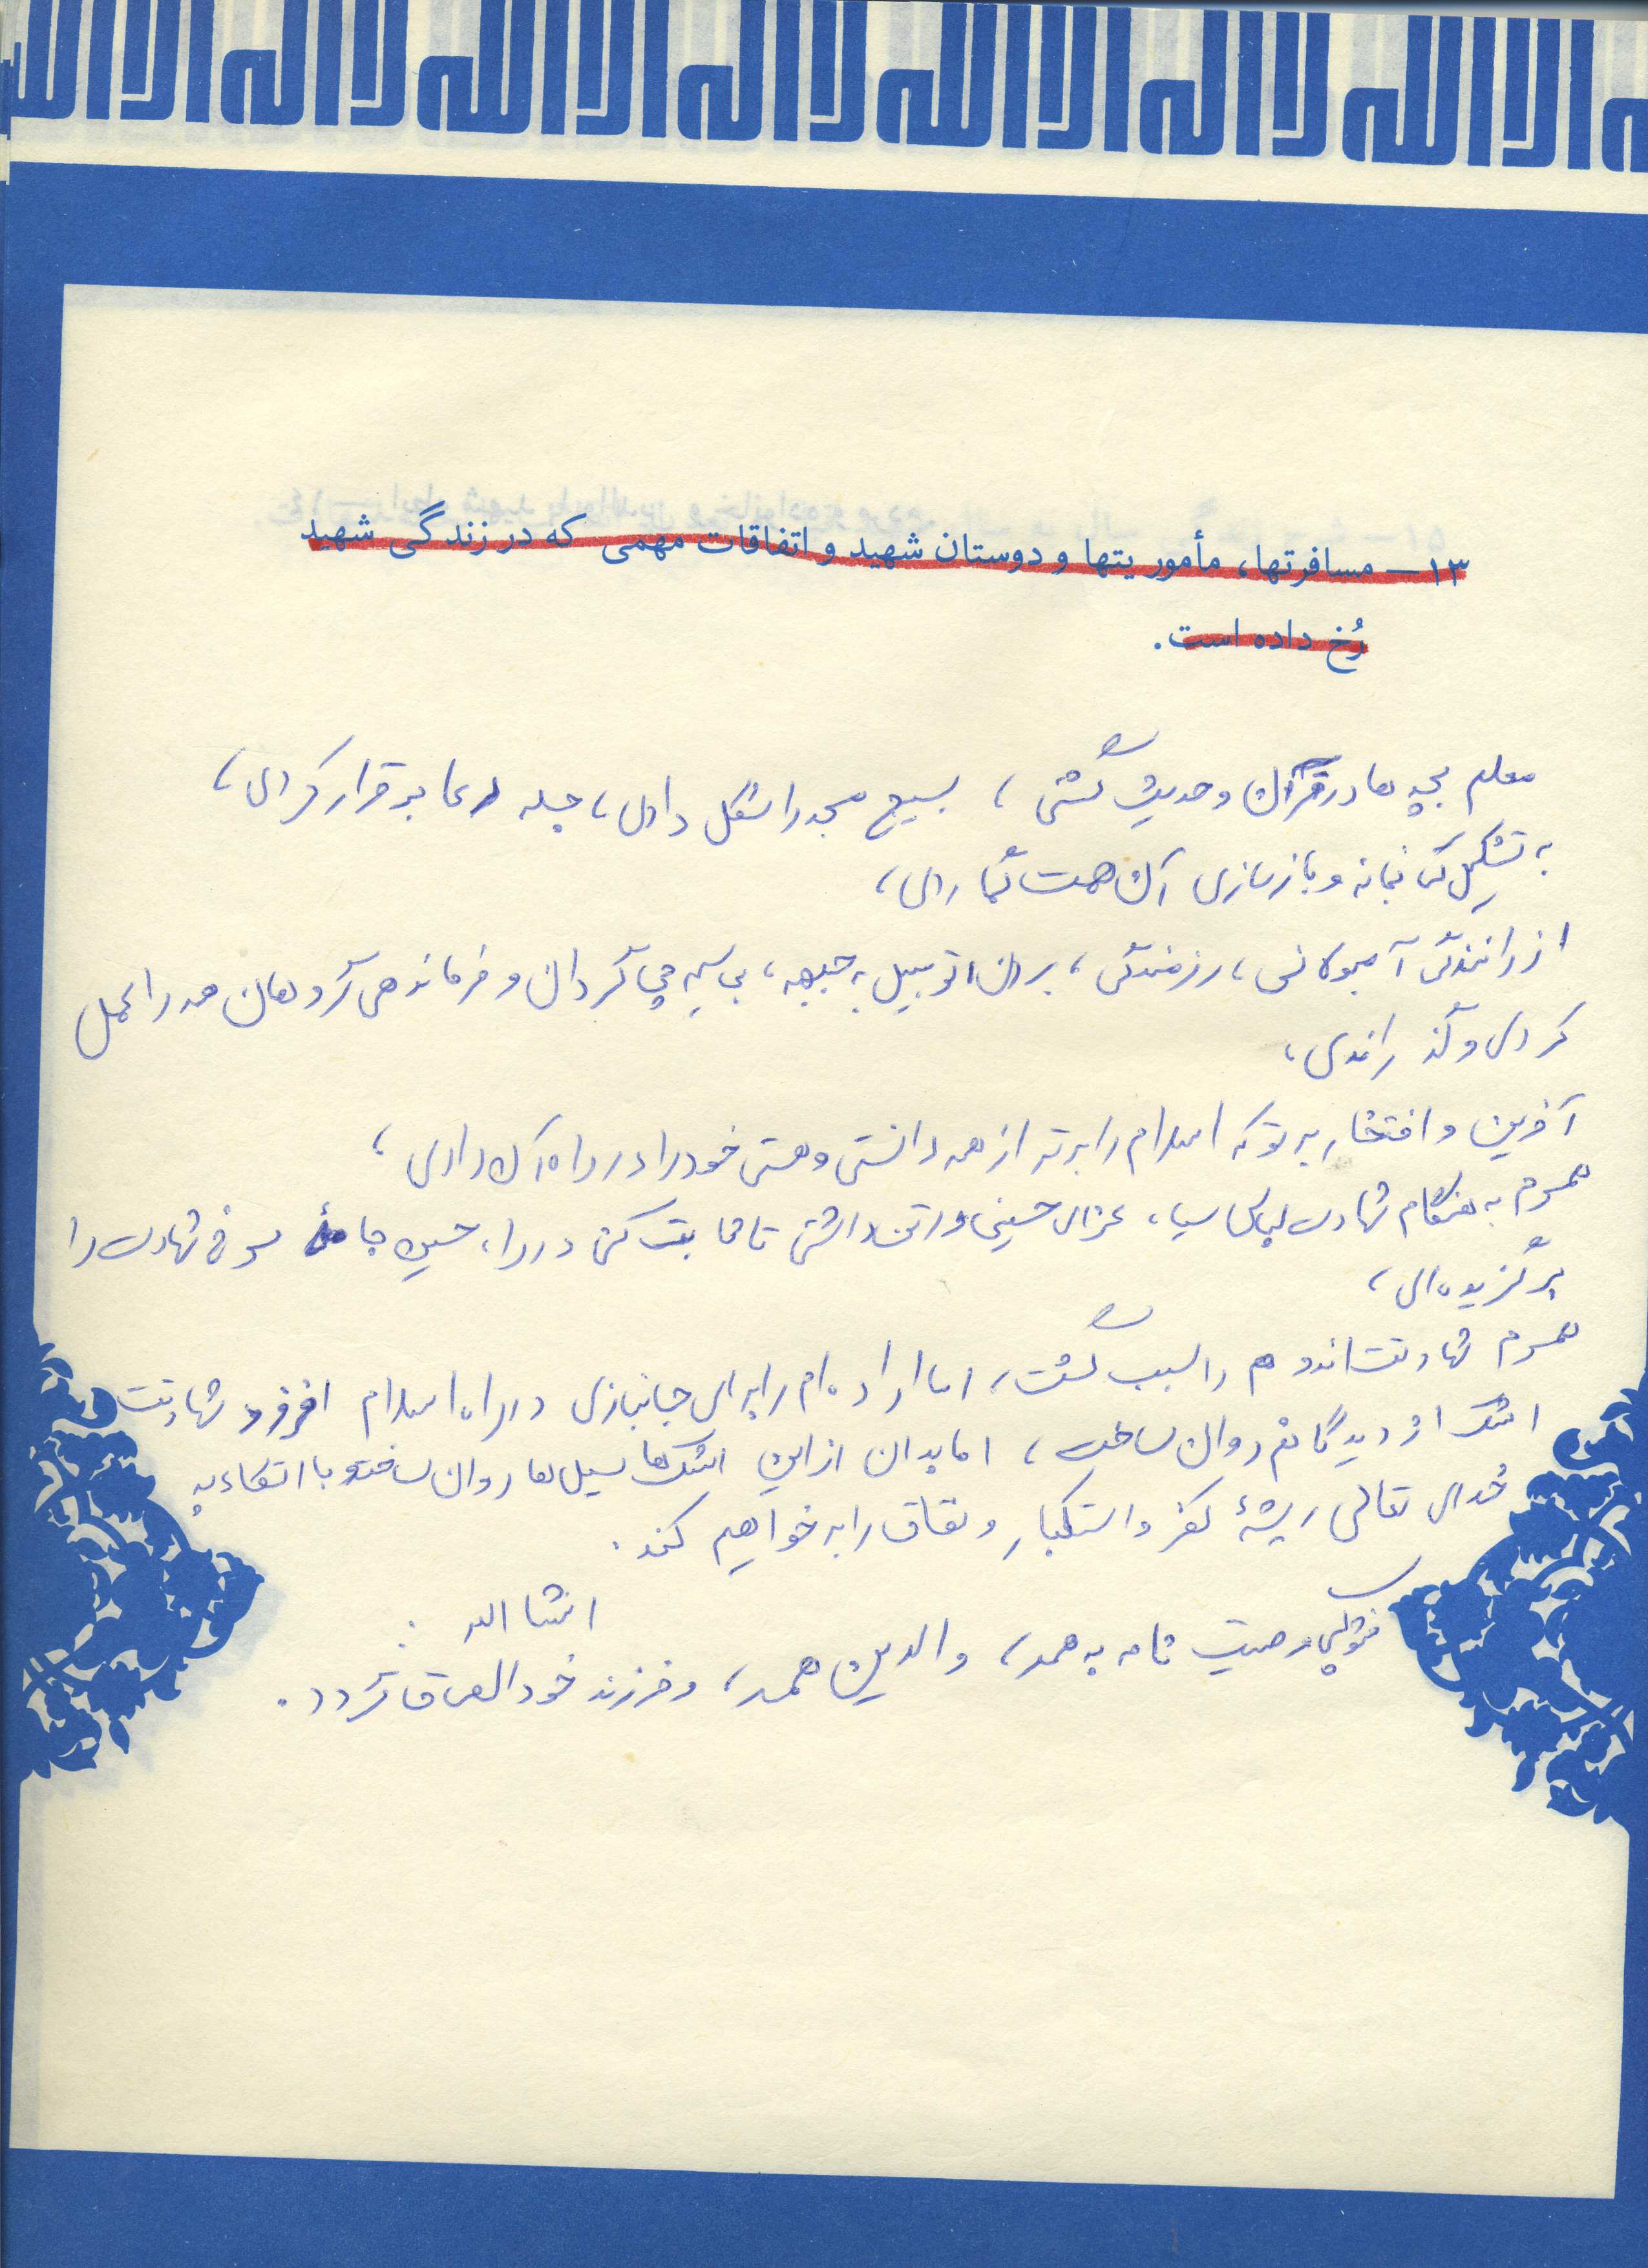 لااله الاالله لااله الاالله لااله الاالله
۱۳— مسافرتها، مأموریتها و دوستان شهید و اتفاقات مهمی که در زندگی شهید
رُخ داده است.
معلم بچه ها در قرآن و حدیث گشتی ، بسیج مسجد را شکل دادی، جلسه دعا برقرار کردی،
به تشکیل کتابخانه و بازسازی آن همت گماردی،
از رانندگی آمبولانس، رزمندگی، بردن اتوبیل به جبهه، بی سیم چی گردان و فرماندهی گروهان همه را عمل
کردی و گذراندی،
آفرین و افتخار بر تو که اسلام را برتر از همه دانستی و هستی خود را در راه آن دادی ،
همسرم به هنگام شهادت لباس سیاه عزای حسینی را تن داشتی تا ثابت کنی در راه حسین جامهٔ سرخ شهادت را
برگزیده ای،
همسرم شهادتت اندوهم را سبب گشت، اما اراده ام را برای جانبازی در راه اسلام افزود شهادتت
اشک از دیدگانم روان ساخت، اما بدان از این اشکها سیل ها روان ساخته و با اتکاء به
خدای تعالی ریشهٔ کفر و استکبار و نفاق را بر خواهیم کند.
انشا الله
فتوکپی وصیت نامه به همسر، والدین همسر، و فرزند خود الصاق گردد.